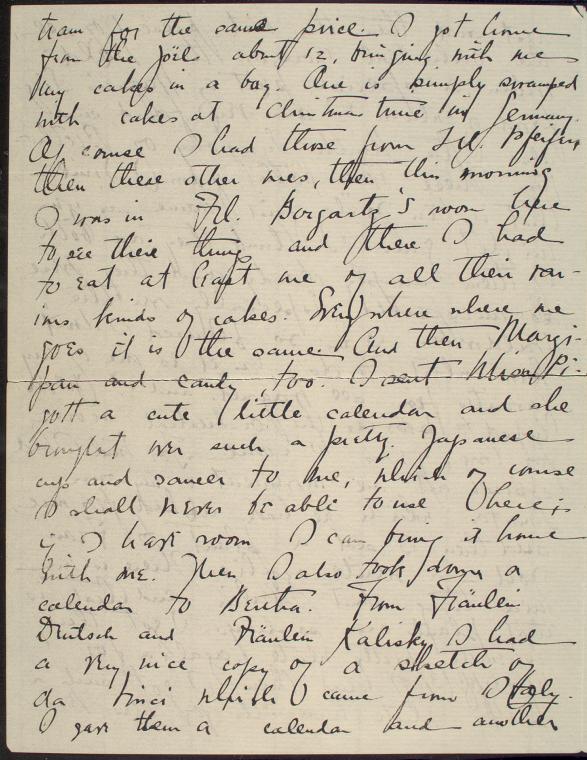 tram for the same price. I got home
from the Jöel about 12, bringing with me
my cakes in a bag. One is simply swamped
with cakes at Christmas time in Germany.
Of course I had those from Frl. Pfeiffer
then these other ones, then this morning
I was in Frl. Borgartz's room here
to see their things and there I had
to eat at least one of all their var-
ious kinds of cakes. Everywhere where one
goes it is the same. And then Marzi-
pan and candy, too. I sent Miss Pi-
gott a cute little calendar and she
brought over such a pretty Japanese
cup and saucer to me, which of course
I shall never be able to use here;
if I have room I can bring it home
with me. Then I also took down a
calendar to Bertha. From Fräulein
Deutsch and Fräulein Kalisky I had
a very nice copy of a sketch of
da Vinci which came from Italy.
I gave them a calendar and another